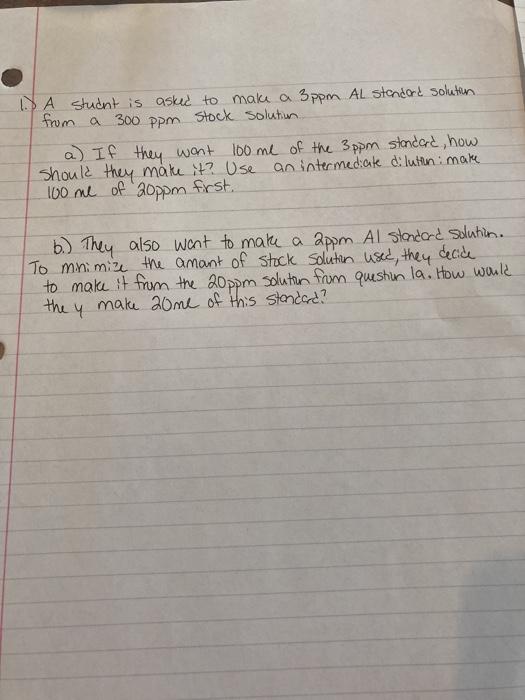 1.) A studnt is asked to make a 3ppm AL standard solution
from a 300 ppm stock solution
a) If they want 100 ml of the 3ppm standard, how
should they make it? Use an intermediate dilution: make
100 ml of 20ppm first.
b.) They also want to make a 2ppm Al standard solution.
To mnimize the amount of stock solution used, they decide
to make it from the 20ppm solution from question 1a. How would
the y make 20ml of this standard?